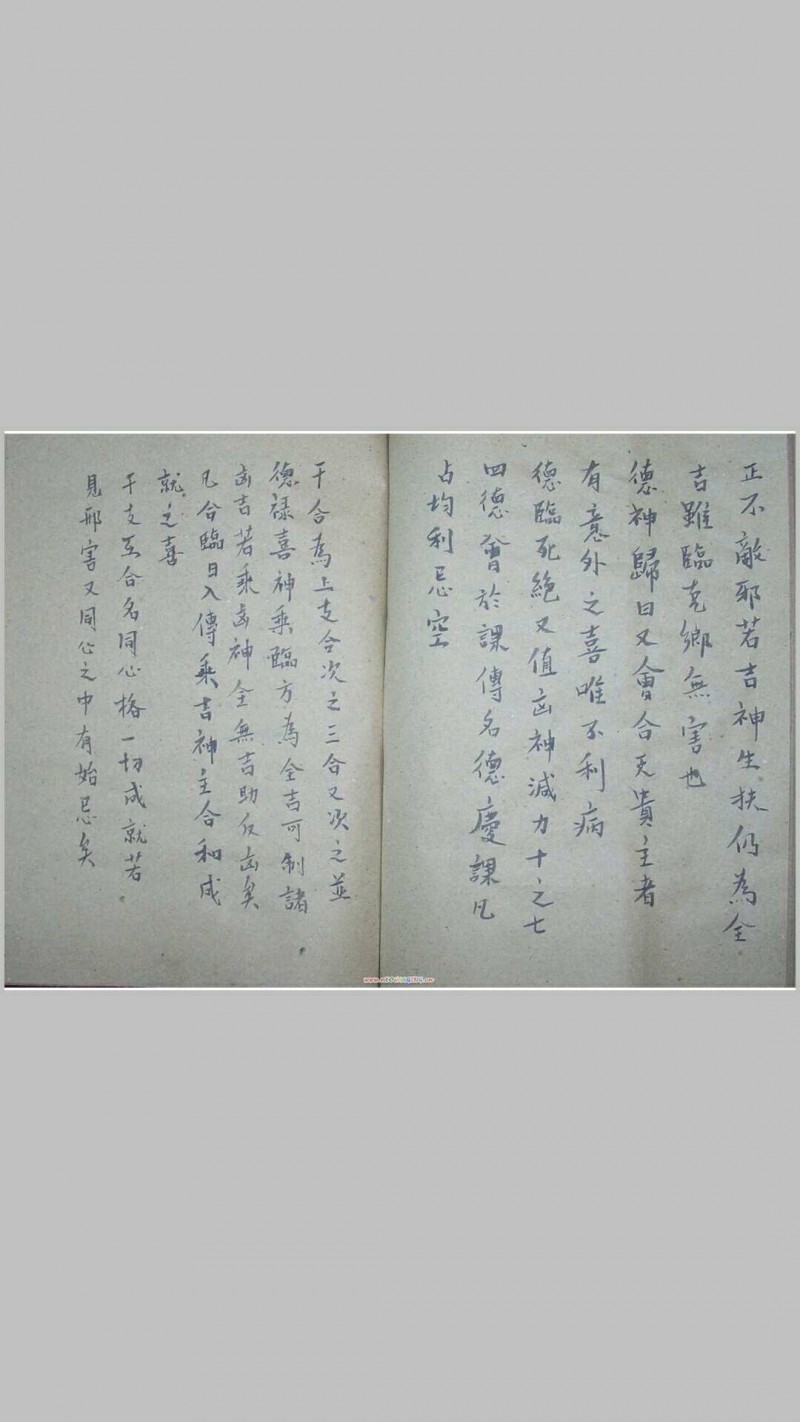 正不敵邪若吉神生扶仍為全
吉雖臨克鄉無害也
德神歸日又會合天貴主者
有意外之喜唯不利病
德臨死絕又值凶神減力十之七
四德會於課傳名德慶課凡
占均利忌空
干合為上支合次之三合又次之並
德祿喜神乘臨方為全吉可制諸
凶吉若乘凶神全無吉助反凶矣
凡合臨日入傳乘吉神主合和成
就之喜
干支互合名同心格一切成就若
見邢害又同心之中有始忌矣